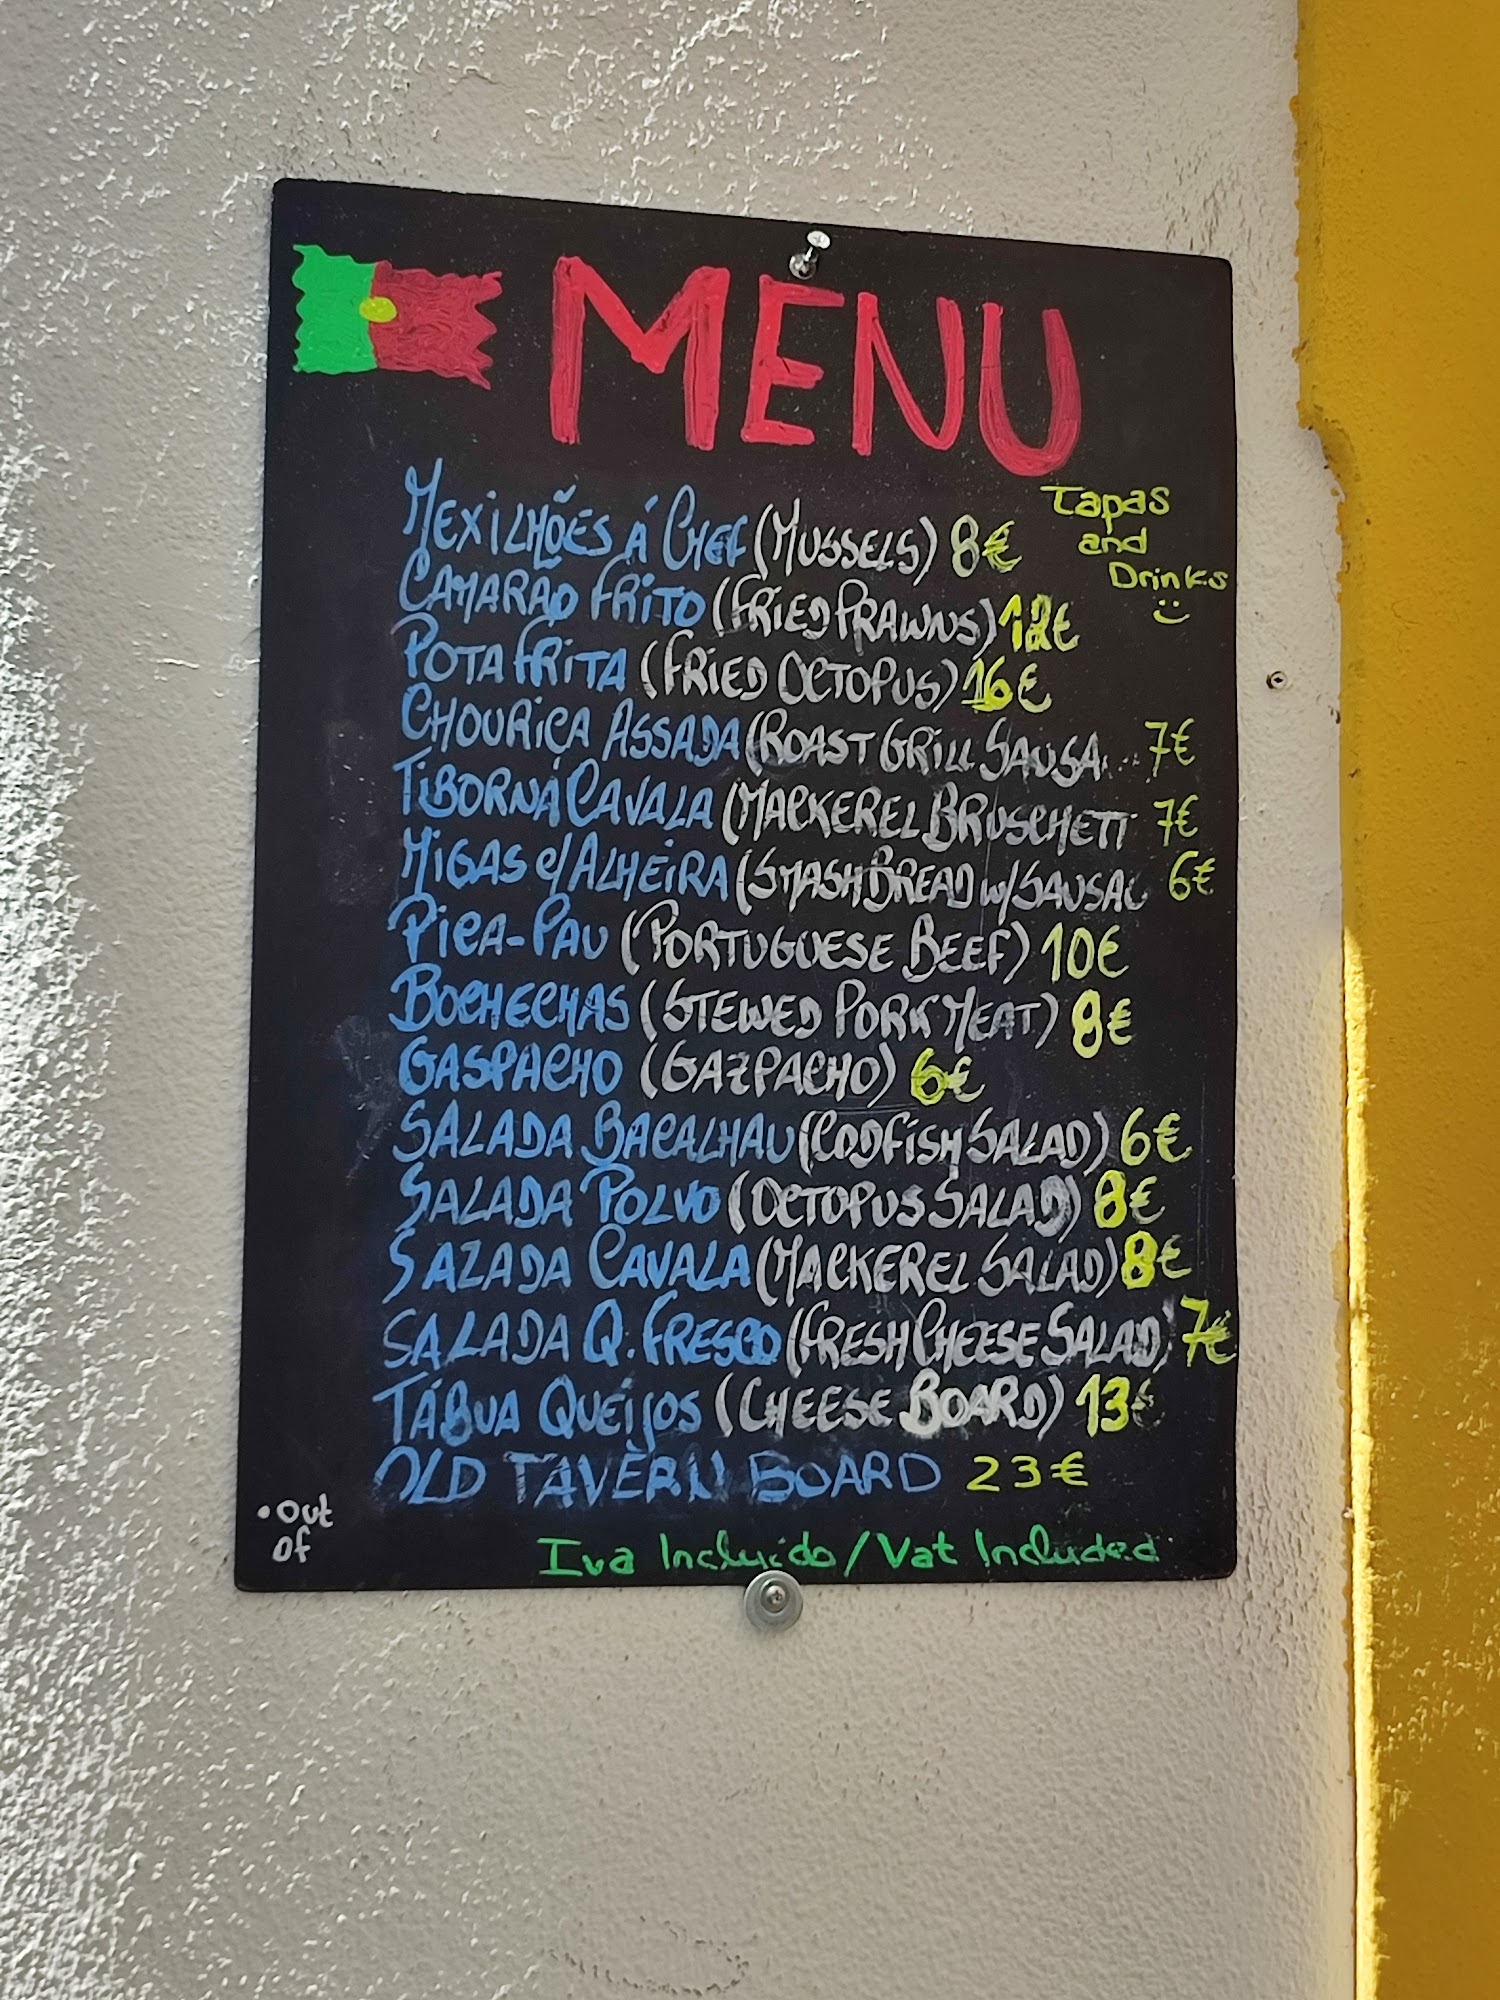 MENU
Tapas
and
Drinks
MEXILHÕES Á CHEF (MUSSELS) 8€
CAMARÃO FRITO (FRIED PRAWNS) 12€
POTA FRITA (FRIED OCTOPUS) 16€
CHOURIÇA ASSADA (ROAST GRILL SAUSA 7€
TIBORNA CAVALA (MACKEREL BRUSCHETT 7€
MIGAS C/ALHEIRA (SMASH BREAD W/SAUSAG 6€
PICA-PAU (PORTUGUESE BEEF) 10€
BOCHECHAS (STEWED PORK MEAT) 8€
GASPACHO (GAZPACHO) 6€
SALADA BACALHAU (CODFISH SALAD) 6€
SALADA POLVO (OCTOPUS SALAD) 8€
SALADA CAVALA (MACKEREL SALAD) 8€
SALADA Q. FRESCO (FRESH CHEESE SALAD) 7€
TÁBUA QUEIJOS (CHEESE BOARD) 13€
OLD TAVERN BOARD 23€
• Out
of
Iva Incluido / Vat Included